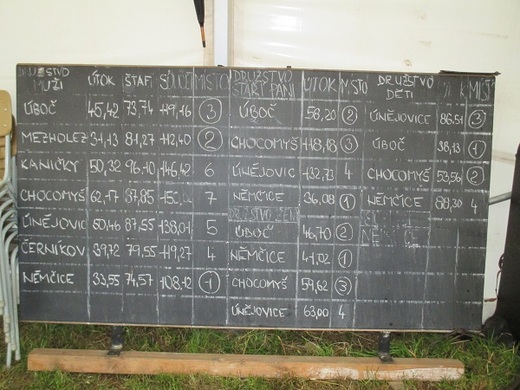 DRUŽSTVO MUŽI ÚTOK ŠTAF. MÍSTO
ÚBOČ 45,42 73,74 119,16 3
MEZHOLEZ 31,13 81,27 112,40 2
KANIČKY 50,32 96,10 146,42 6
CHOCOMYŠL 62,17 87,85 7
ÚNĚJOVIC 50,46 87,55 138,01 5
ČERNÍKOV 39,72 79,55 119,27 4
NĚMČICE 33,55 74,57 108,12 1
DRUŽSTVO STARŠÍ PÁNI ÚTOK MÍSTO
ÚBOČ 58,20 2
CHOCOMYŠL 118,18 3
ÚNĚJOVIC 132,73 4
NĚMČICE 36,08 1
DRUŽSTVO ŽENY
ÚBOČ 46,70 2
NĚMČICE 41,02 1
CHOCOMYŠL 59,62 3
ÚNĚJOVICE 63,00 4
DRUŽSTVO DĚTI
ÚNĚJOVICE 86,51 3
ÚBOČ 38,13 1
CHOCOMYŠL 53,56 2
NĚMČICE 88,30 4